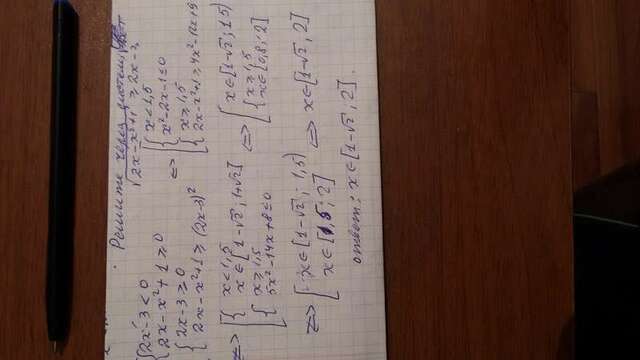 Решите через систему
√(2x-x²+1) ≥ 2x-3
[ { 2x-3<0
2x-x²+1≥0
{ 2x-3≥0
2x-x²+1≥(2x-3)²
<=> [ { x<1,5
x²-2x-1≤0
{ x≥1,5
2x-x²+1≥4x²-12x+9
<=> [ { x<1,5
x∈[1-√2; 1+√2]
{ x≥1,5
5x²-14x+8≤0
<=> [ x∈[1-√2; 1,5)
{ x≥1,5
x∈[0,8; 2]
<=> [ x∈[1-√2; 1,5)
x∈[1,5; 2]
<=> x∈[1-√2, 2]
ответ: x∈[1-√2; 2].